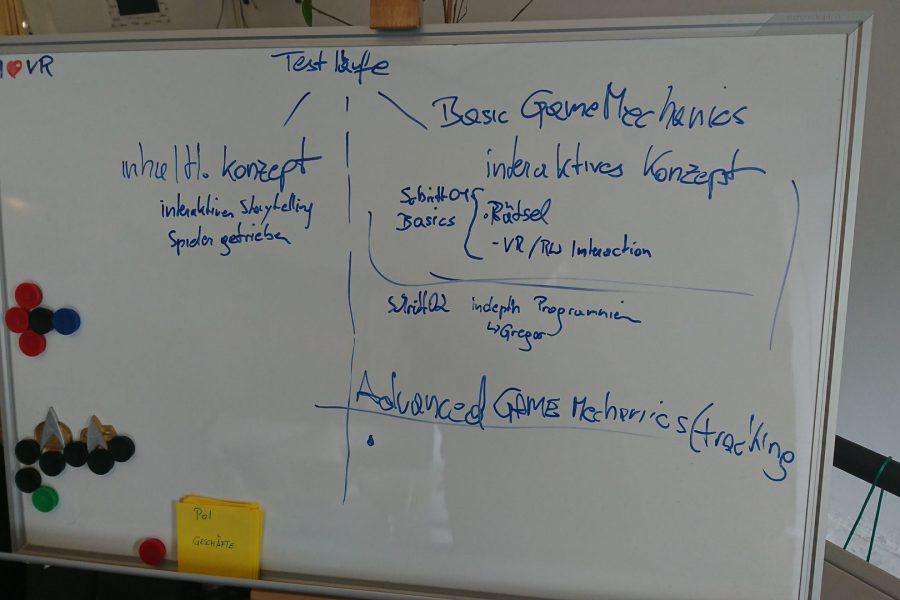 I ❤ VR
Testläufe
Basic GameMechanics
inhaltl. Konzept
interaktives Storytelling
Spieler getrieben
interaktives Konzept
Schritt 01
Basics
· Rätsel
- VR/RW Interaction
Schritt 02 indepth Programmieren
↳ Gregor
Advanced GAME Mechanics (tracking
Pol
GESCHÄFTE